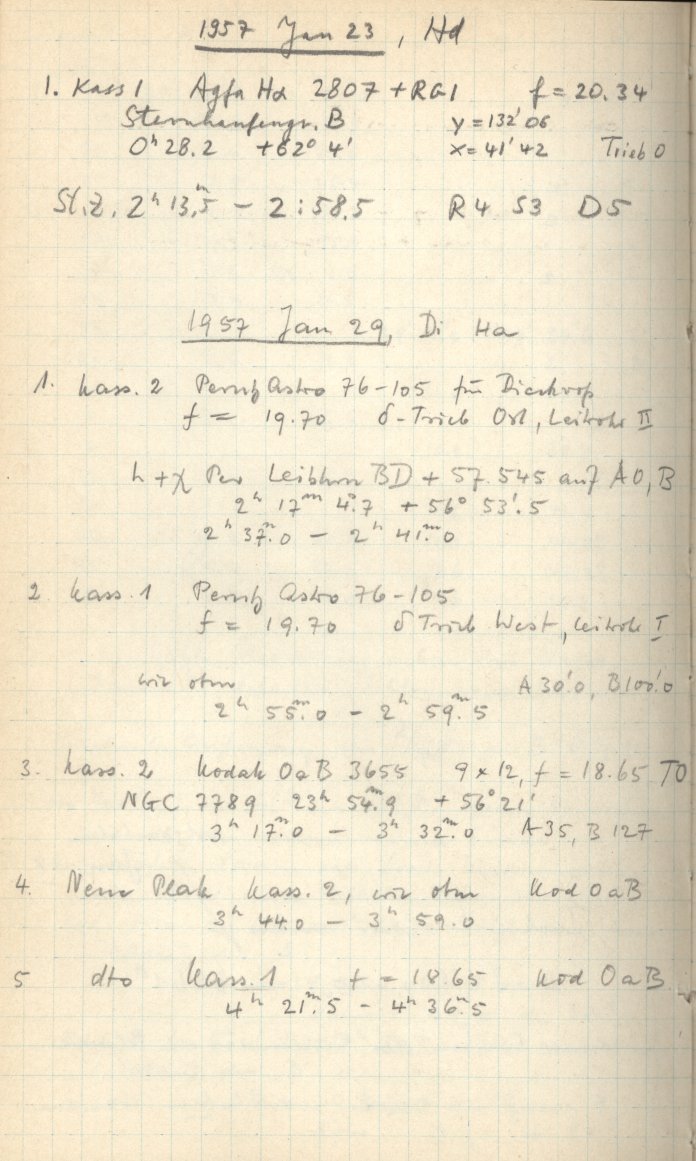 1957 Jan 23, Hd
1. Kass 1 Agfa Hα 2807 + RG1 f = 20.34
Sternhaufengr. B y = 132' 06
0ʰ 28.2 +62° 4' x = 41' 42 Trieb 0
St.Z. 2ʰ 13,ᵐ5 – 2:58.5 R4 S3 D5
1957 Jan 29, Di Ha
1. Kass. 2 Perutz Astro 76-105 für Dieckvoß
f = 19.70 δ-Trieb Ost, Leitrohr II
h + χ Per Leitstern BD + 57.545 auf A0, B
2ʰ 17ᵐ 4.ˢ7 + 56° 53'.5
2ʰ 37ᵐ.0 – 2ʰ 41ᵐ.0
2 Kass. 1 Perutz Astro 76-105
f = 19.70 δ Trieb West, Leitrohr I
wie oben A 30'.0, B 100'.0
2ʰ 55ᵐ.0 – 2ʰ 59ᵐ.5
3. Kass. 2 Kodak OaB 3655 9 x 12, f = 18.65 T0
NGC 7789 23ʰ 54ᵐ.9 + 56° 21'
3ʰ 17ᵐ.0 – 3ʰ 32ᵐ.0 A 35, B 127
4. Neue Platte Kass. 2, wie oben Kod OaB
3ʰ 44.0 – 3ʰ 59.0
5 dto Kass. 1 f = 18.65 Kod OaB
4ʰ 21ᵐ.5 – 4ʰ 36ᵐ.5